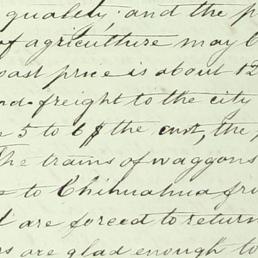 quality; and the p
of agriculture may b
oast price is about 12
nd freight to the city
5 to 6$ the cwt, the
The trains of waggons
to Chihuahua fr
are forced to return
are glad enough to